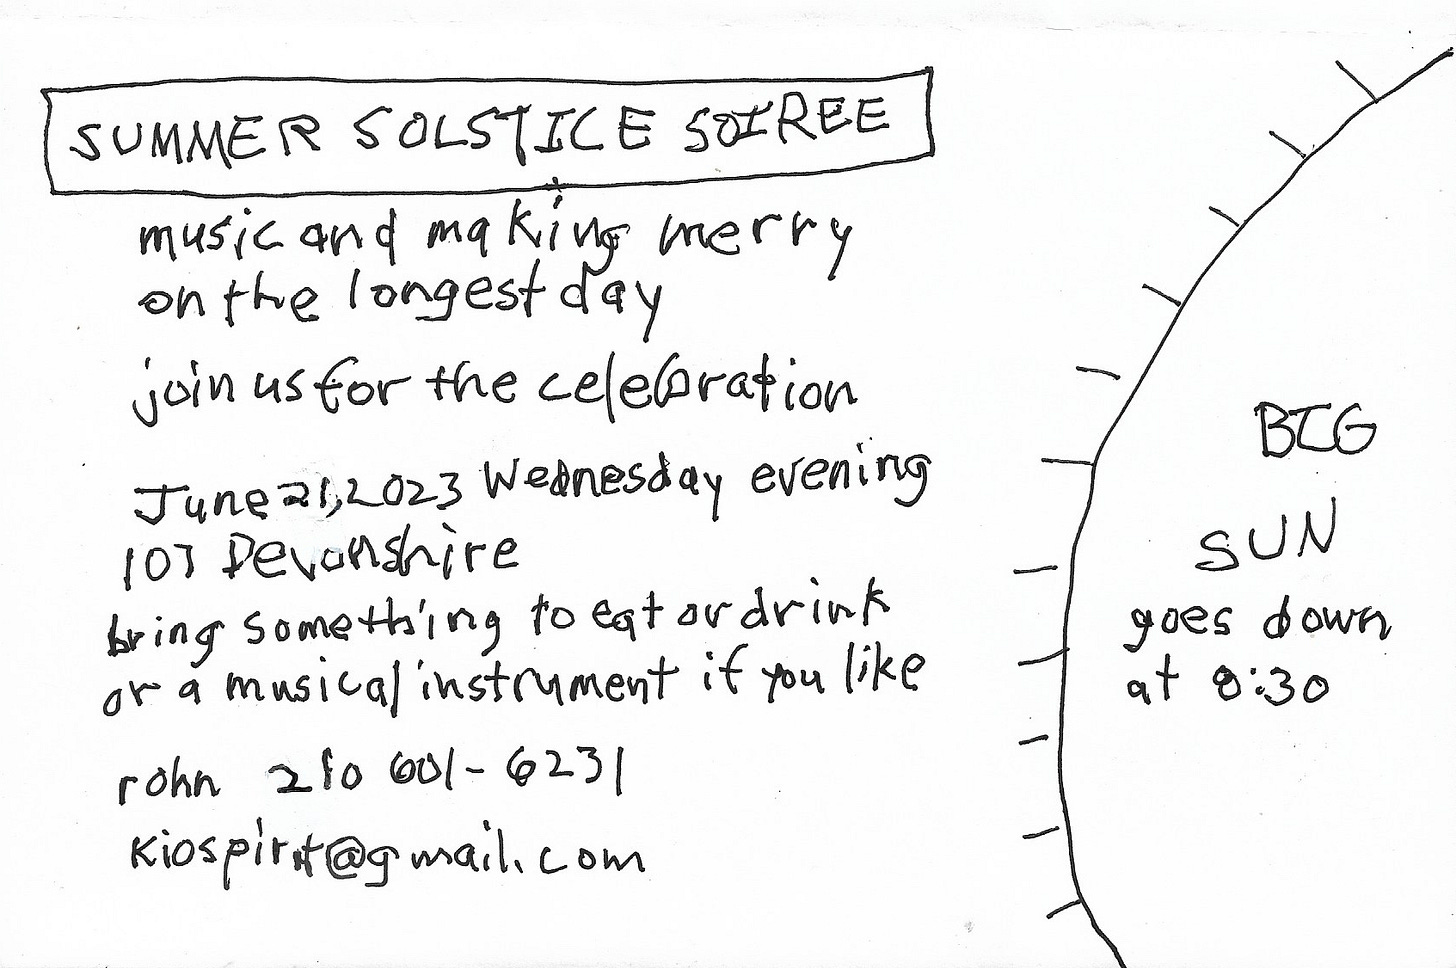 SUMMER SOLSTICE SOIREE
music and making merry
on the longest day
join us for the celebration
June 21, 2023 Wednesday evening
107 Devonshire
bring something to eat or drink
or a musical instrument if you like
rohn 210 601-6231
kiospirit@gmail.com
BIG
SUN
goes down
at 8:30